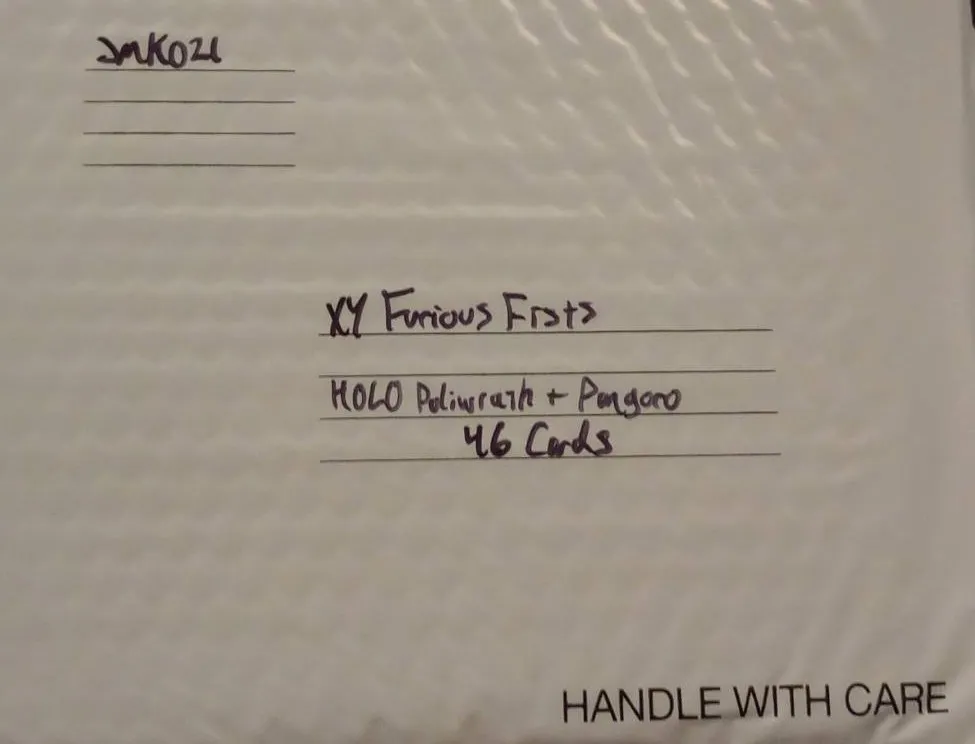 JMK021
XY Furious Fists
HOLO Poliwrath + Pangoro
46 Cards
HANDLE WITH CARE